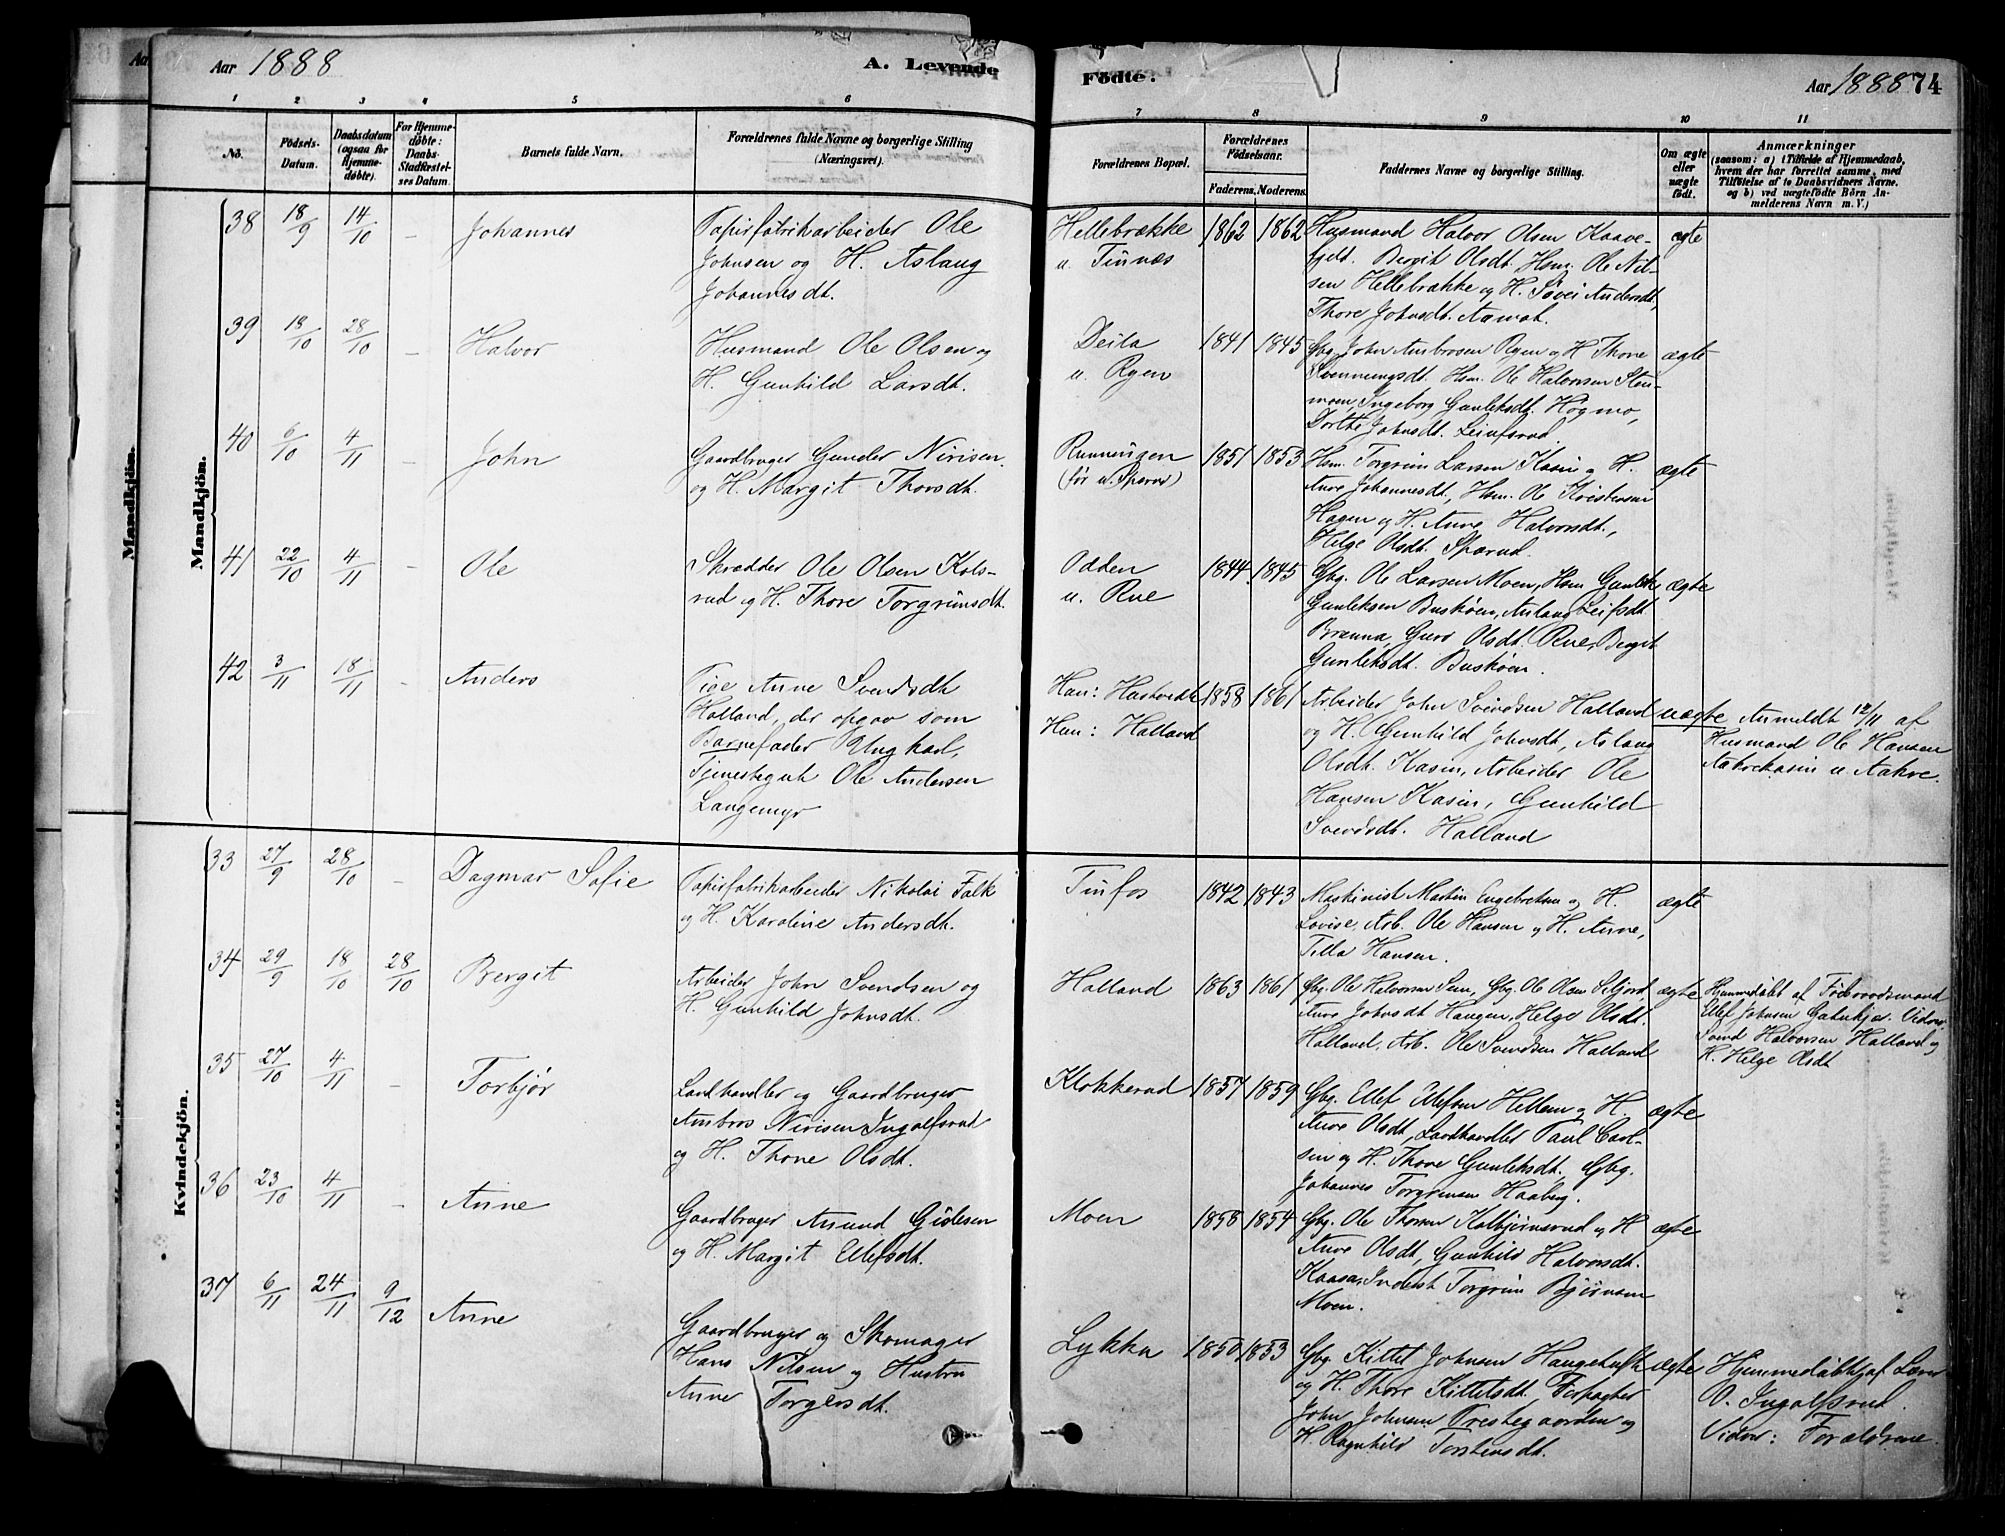 Aar 1888
A. Levende
Födte.
Aar 1888 74
1 2 3 4 5 6 7 8 9 10 11
No.
Födsels-
Datum.
Daabsdatum
(ogsaa for
Hjemme-
döbte).
For Hjemme-
döbte:
Daabs-
Stadfæstel-
ses Datum.
Barnets fulde Navn.
Forældrenes fulde Navne og borgerlige Stilling
(Næringsvei).
Forældrenes Bopæl.
Forældrenes
Födselsaar.
Faderens. Moderens.
Faddernes Navne og borgerlige Stilling.
Om ægte
eller
uægte
födt.
Anmærkninger
(saasom: a) i Tilfælde af Hjemmedaab,
hvem der har forrettet samme, med
Tilföielse af to Daabsvidners Navne.
og b) ved uægtefödte Börn An-
melderens Navn m. V.)
Mandkjön.
Mandkjön.
38 18/9 14/10 - Johannes
Papirfabrikarbeider Ole
Johnsen og H. Aslaug
Johannesdt.
Hellebrække
u. Tinnæs
1862 1862
Husmand Halvor Olsen Kaave-
fjeld. Bergit Olsdt. Hsm. Ole Nil-
sen Hellebrække og H. Søvei Andersdt,
Thore Johnsdt. Aamot.
ægte
39 18/10 28/10 - Halvor
Husmand Ole Olsen og
H. Gunhild Larsdt.
Deila
u. Ryen
1841 1845
Gbg. John Ambrosen Ryen og H Thore
Svennungsdt, Hsm. Ole Halvorsen Sten-
moen, Ingeborg Gunleksdt. Høgmo,
Dorthe Johnsdt.
ægte
40 6/10 4/11 - John
Gaardbruger Gunder Nirisen
og H. Margit Thorsdt.
Runningen
(før u. Sparud)
1851 1853
Hsm. Torgrim Larsen Kasin og H.
Anne Johannesdt, Hsm. Ole Kristensen
Hagen og H. Anne Halvorsdt.,
Helge Olsdt. Sparud.
ægte
41 22/10 4/11 - Ole
Skrædder Ole Olsen Kols-
rud og H. Thore Torgrimsdt.
Odden
u. Rue
1844 1845
Gbg. Ole Larsen Moen, Hsm Gunlek
Gunleksen Buskøen, Aslaug Leifsdt
Brænna, Guro Olsdt. Rue, Bergit
Gunleksdt. Buskøen.
ægte
42 3/11 18/11 - Anders
Pige Anne Svendsdt
Holland, der opgav som
Barnefader Ungkarl,
Tjenestegut Ole Andersen
Langemyr
Han: Hastvedt
Hun: Halland
1858 1861
Arbeider John Svendsen Halland
og H. Gunhild Johnsdt, Aslaug
Olsdt. Kasin, Arbeider Ole
Hansen Kasin, Gunhild
Svendsdt. Halland
uægte
Anmeldt 12/11 af
Husmand Ole Hansen
Aakrekasin u. Aakre.
Kvindekjön.
33 27/9 28/10 - Dagmar Sofie
Papirfabrikarbeider Nikolai Falk
og H. Karoline Andersdt.
Tinfos
1842 1843
Maskinist Martin Engebretsen og H.
Lovise, Arb. Ole Hansen og H. Anne,
Tilla Hansen.
ægte
34 29/9 18/10 28/10 Bergit
Arbeider John Svendsen og
H. Gunhild Johnsdt.
Halland
1863 1861
Gbg. Ole Halvorsen Sem, Gbg. Ole Olsen Seljord,
Anne Johnsdt Haugen, Helge Olsdt.
Halland, Arb. Ole Svendsen Halland
ægte
Hjemmedøbt af Føderaadsmand
Ellef Johnsen Vidner
Svend Halvorsen Halland og
H. Helge Olsdt
35 27/10 4/11 - Torbjør
Landhandler og Gaardbruger
Ambros Nirisen Ingolfsrud
og H. Thone Olsdt.
Klokkerud
1857 1859
Gbg. Ellef Ellefsen Hellem og H.
Anne Olsdt, Landhandler Paul Carl-
sen og H. Thore Gunleksdt, Gbg.
Johannes Torgrimsen Haaberg.
ægte
36 23/10 4/11 - Anne
Gaardbruger Amund Gidesen
og H. Margit Ellefsdt.
Moen
1858 1854
Gbg. Ole Thorsen Kolbjørnsrud og H
Anne Olsdt, Gunhild Halvorsdt.
Kaasa, Inderst Torgrim Bjørnsen
Moen.
ægte
37 6/11 24/11 9/12 Anne
Gaardbruger og Skomager
Hans Nilsen og Hustru
Anne Torgersdt.
Lykka
1850 1853
Gbg. Kittel Johnsen
og H. Thore Kittelsdt, Forpagter
John Johnsen Prestegaarden og
H. Ragnhild Torstensdt.
ægte
Hjemmedøbt af
O. Ingolfsrud.
Vidner: Forældrene.